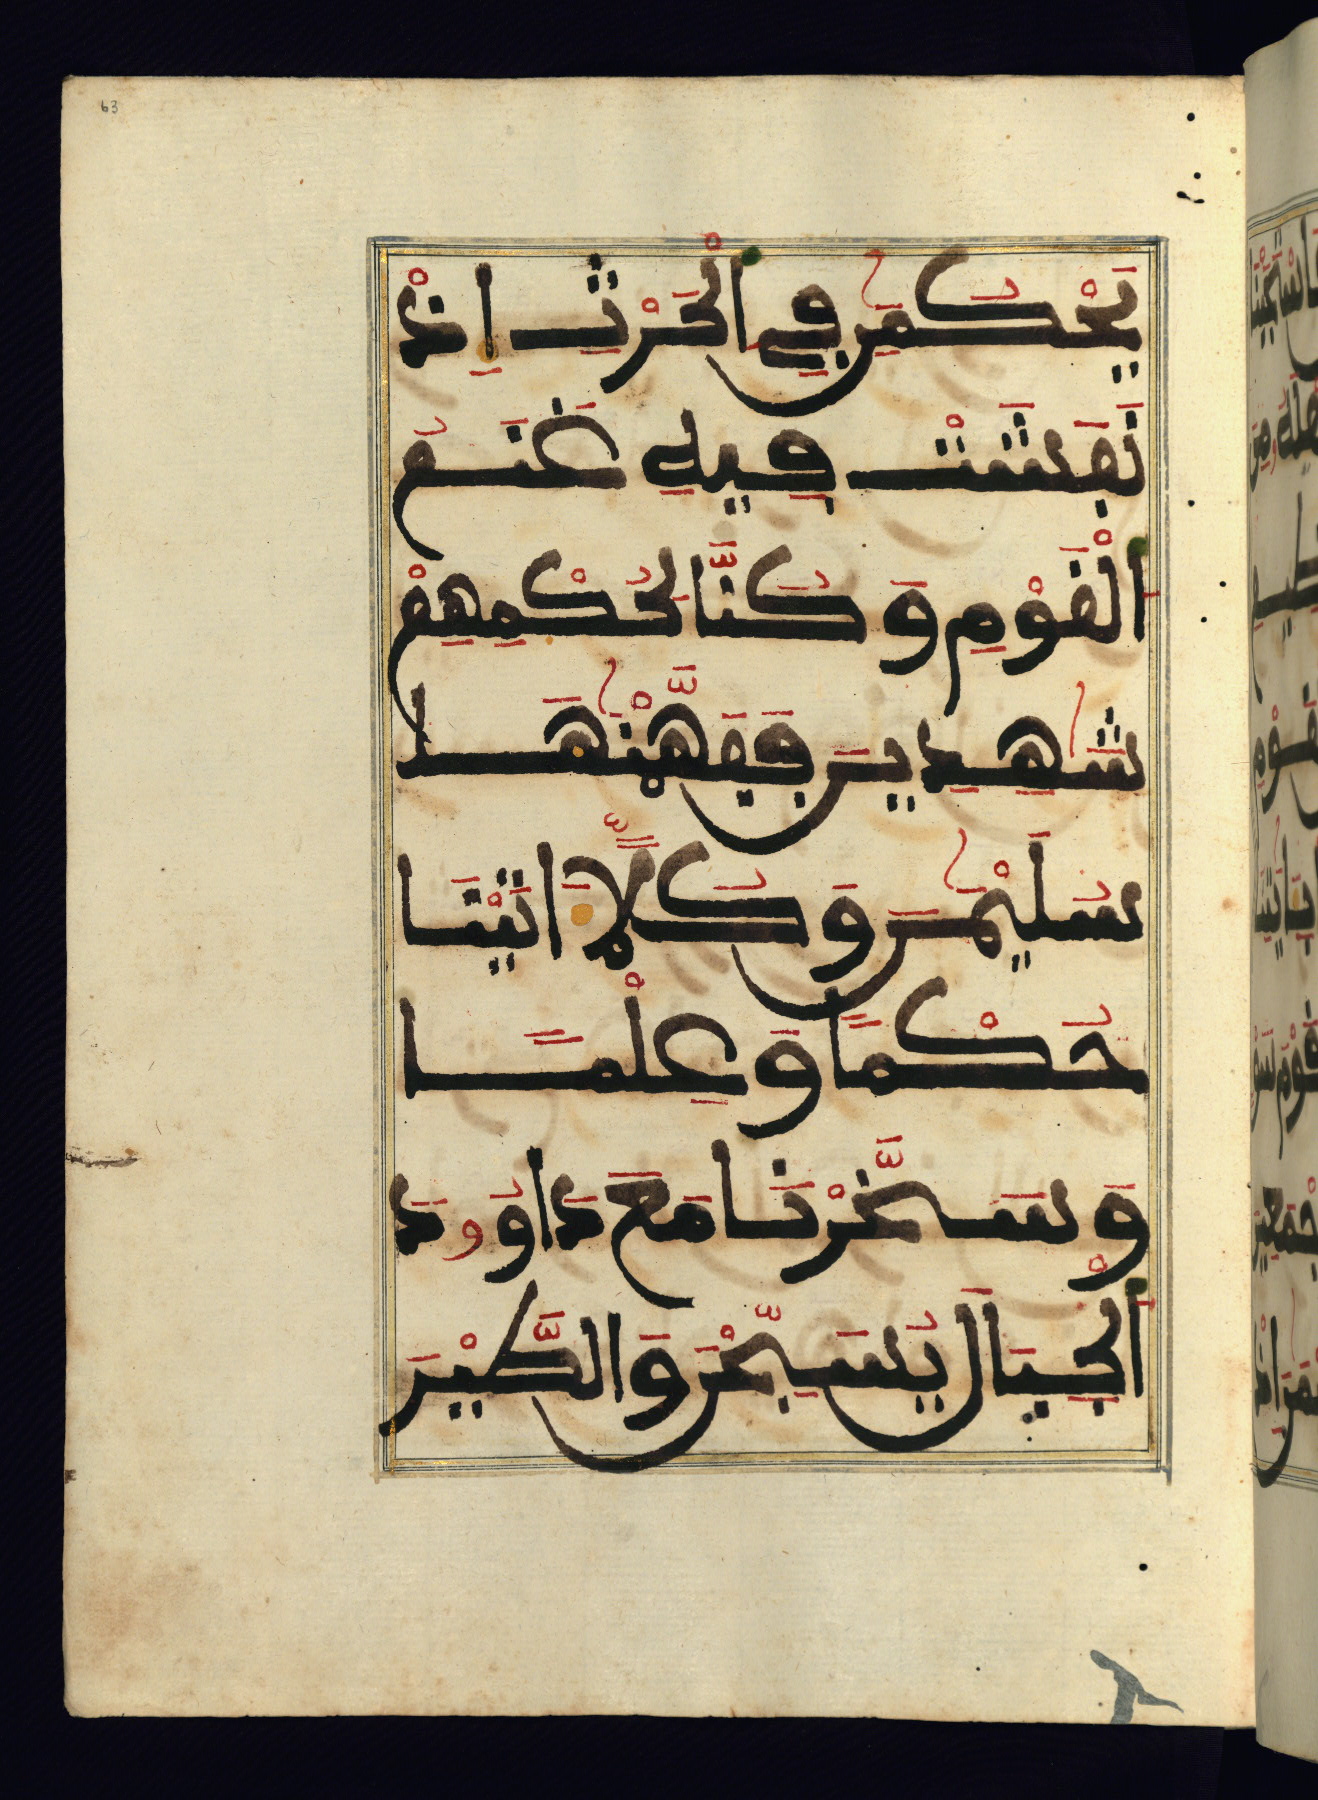 63
يَحْكُمَٰنِ فِي اِ۬لْحَرْثِ إِذْ
نَفَشَتْ فِيهِ غَنَمُ
اُ۬لْقَوْمِ وَكُنَّا لِحُكْمِهِمْ
شَٰهِدِينَ فَفَهَّمْنَٰهَا
سُلَيْمَٰنَ وَكُلًّا اٰتَيْنَا
حُكْمًا وَعِلْمًا
وَسَخَّرْنَا مَعَ دَاوُۥدَ
اَ۬لْجِبَالَ يُسَبِّحْنَ وَالطَّيْرَ